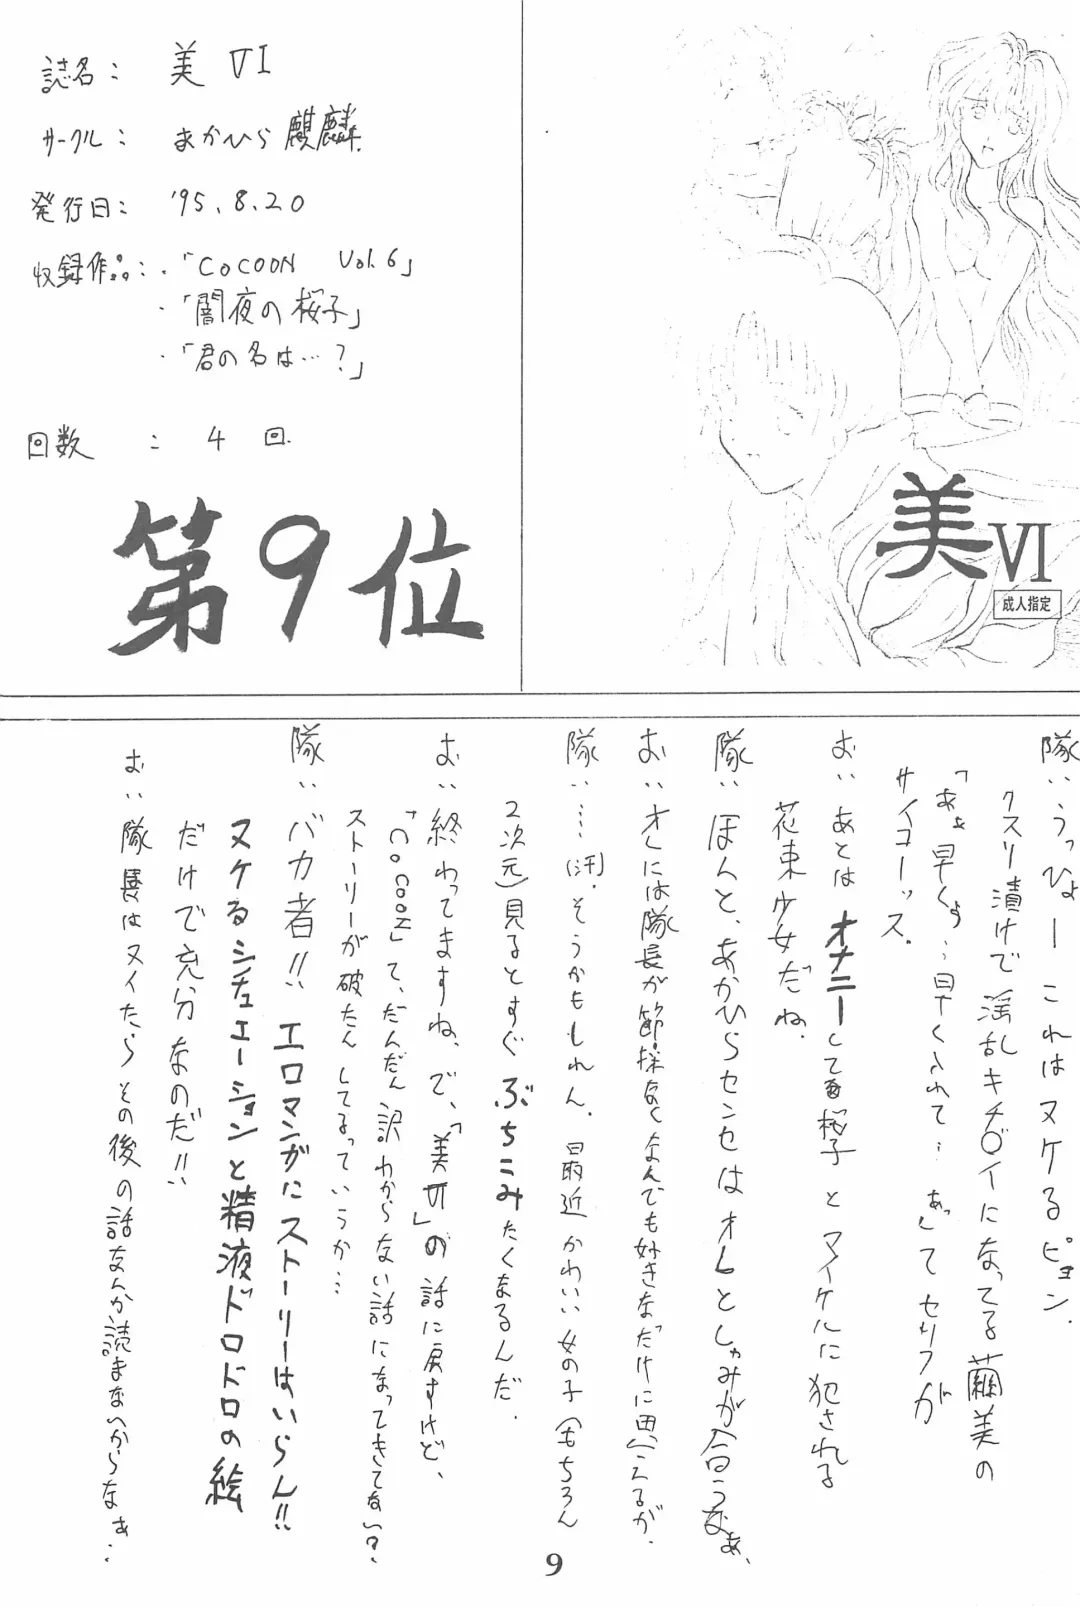 誌名： 美 VI
サークル： まかひら麒麟
発行日： '95.8.20
収録作品：・「COCOON Vol.6」
・「闇夜の桜子」
・「君の名は…？」
回数 ： 4 回.
第9位
美VI
成人指定
隊：うっひょー これはヌケるピョン.
クスリ漬けで淫乱キチ〇イになってる繭美の
「あぁ早くぅ…早く入れて…あっ」てセリフが
サイコーッス.
お：あとはオナニーしてる桜子とマイケルに犯される
花束少女だね.
隊：ほんと、あかひらセンセはオレとしゅみが合うなぁ、
お：オレには隊長が節操なくなんでも好きなだけに思えるが.
隊：…(汗).そうかもしれん. 最近かわいい女の子(もちろん
2次元)見るとすぐぶちこみたくなるんだ.
お：終わってますね、で、「美VI」の話に戻すけど、
「COCOON」て、だんだん訳わからない話になってきてない？
ストーリーが破たんしてるっていうか…
隊：バカ者!! エロマンガにストーリーはいらん!!
ヌケるシチュエーションと精液ドロドロの絵
だけで充分なのだ!!
お：隊長はヌイたらその後の話なんか読まないからなぁ…
9